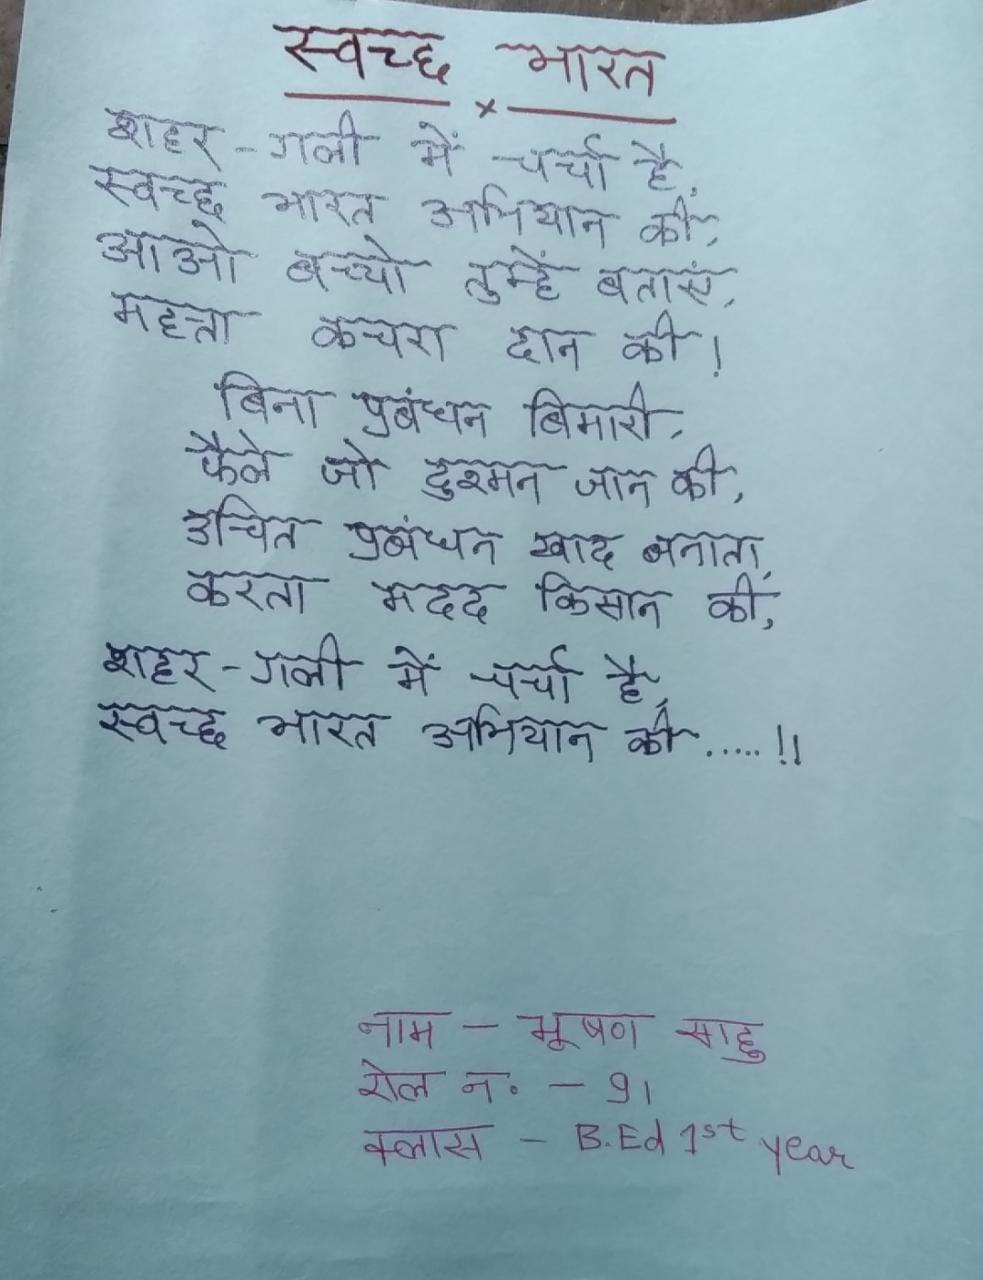 स्वच्छ भारत
x
शहर - गली में चर्चा है,
स्वच्छ भारत अभियान की,
आओ बच्चो तुम्हें बताएं,
महत्ता कचरा दान की!
बिना प्रबंधन बिमारी,
फैले जो दुश्मन जान की,
उचित प्रबंधन खाद बनाता,
करता मदद किसान की,
शहर - गली में चर्चा है,
स्वच्छ भारत अभियान की.....!!
नाम - भूषण साहु
रोल न. - 91
क्लास - B.Ed 1st year